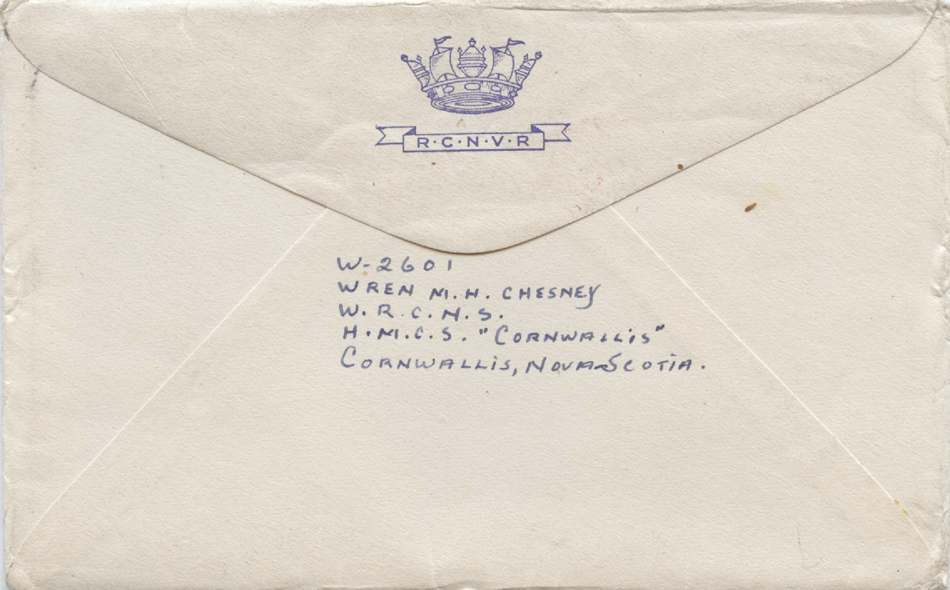 R·C·N·V·R
W-2601
WREN M.H. CHESNEY
W.R.C.N.S.
H.M.C.S. "CORNWALLiS"
CORNWALLiS, NOVA-SCOTiA.